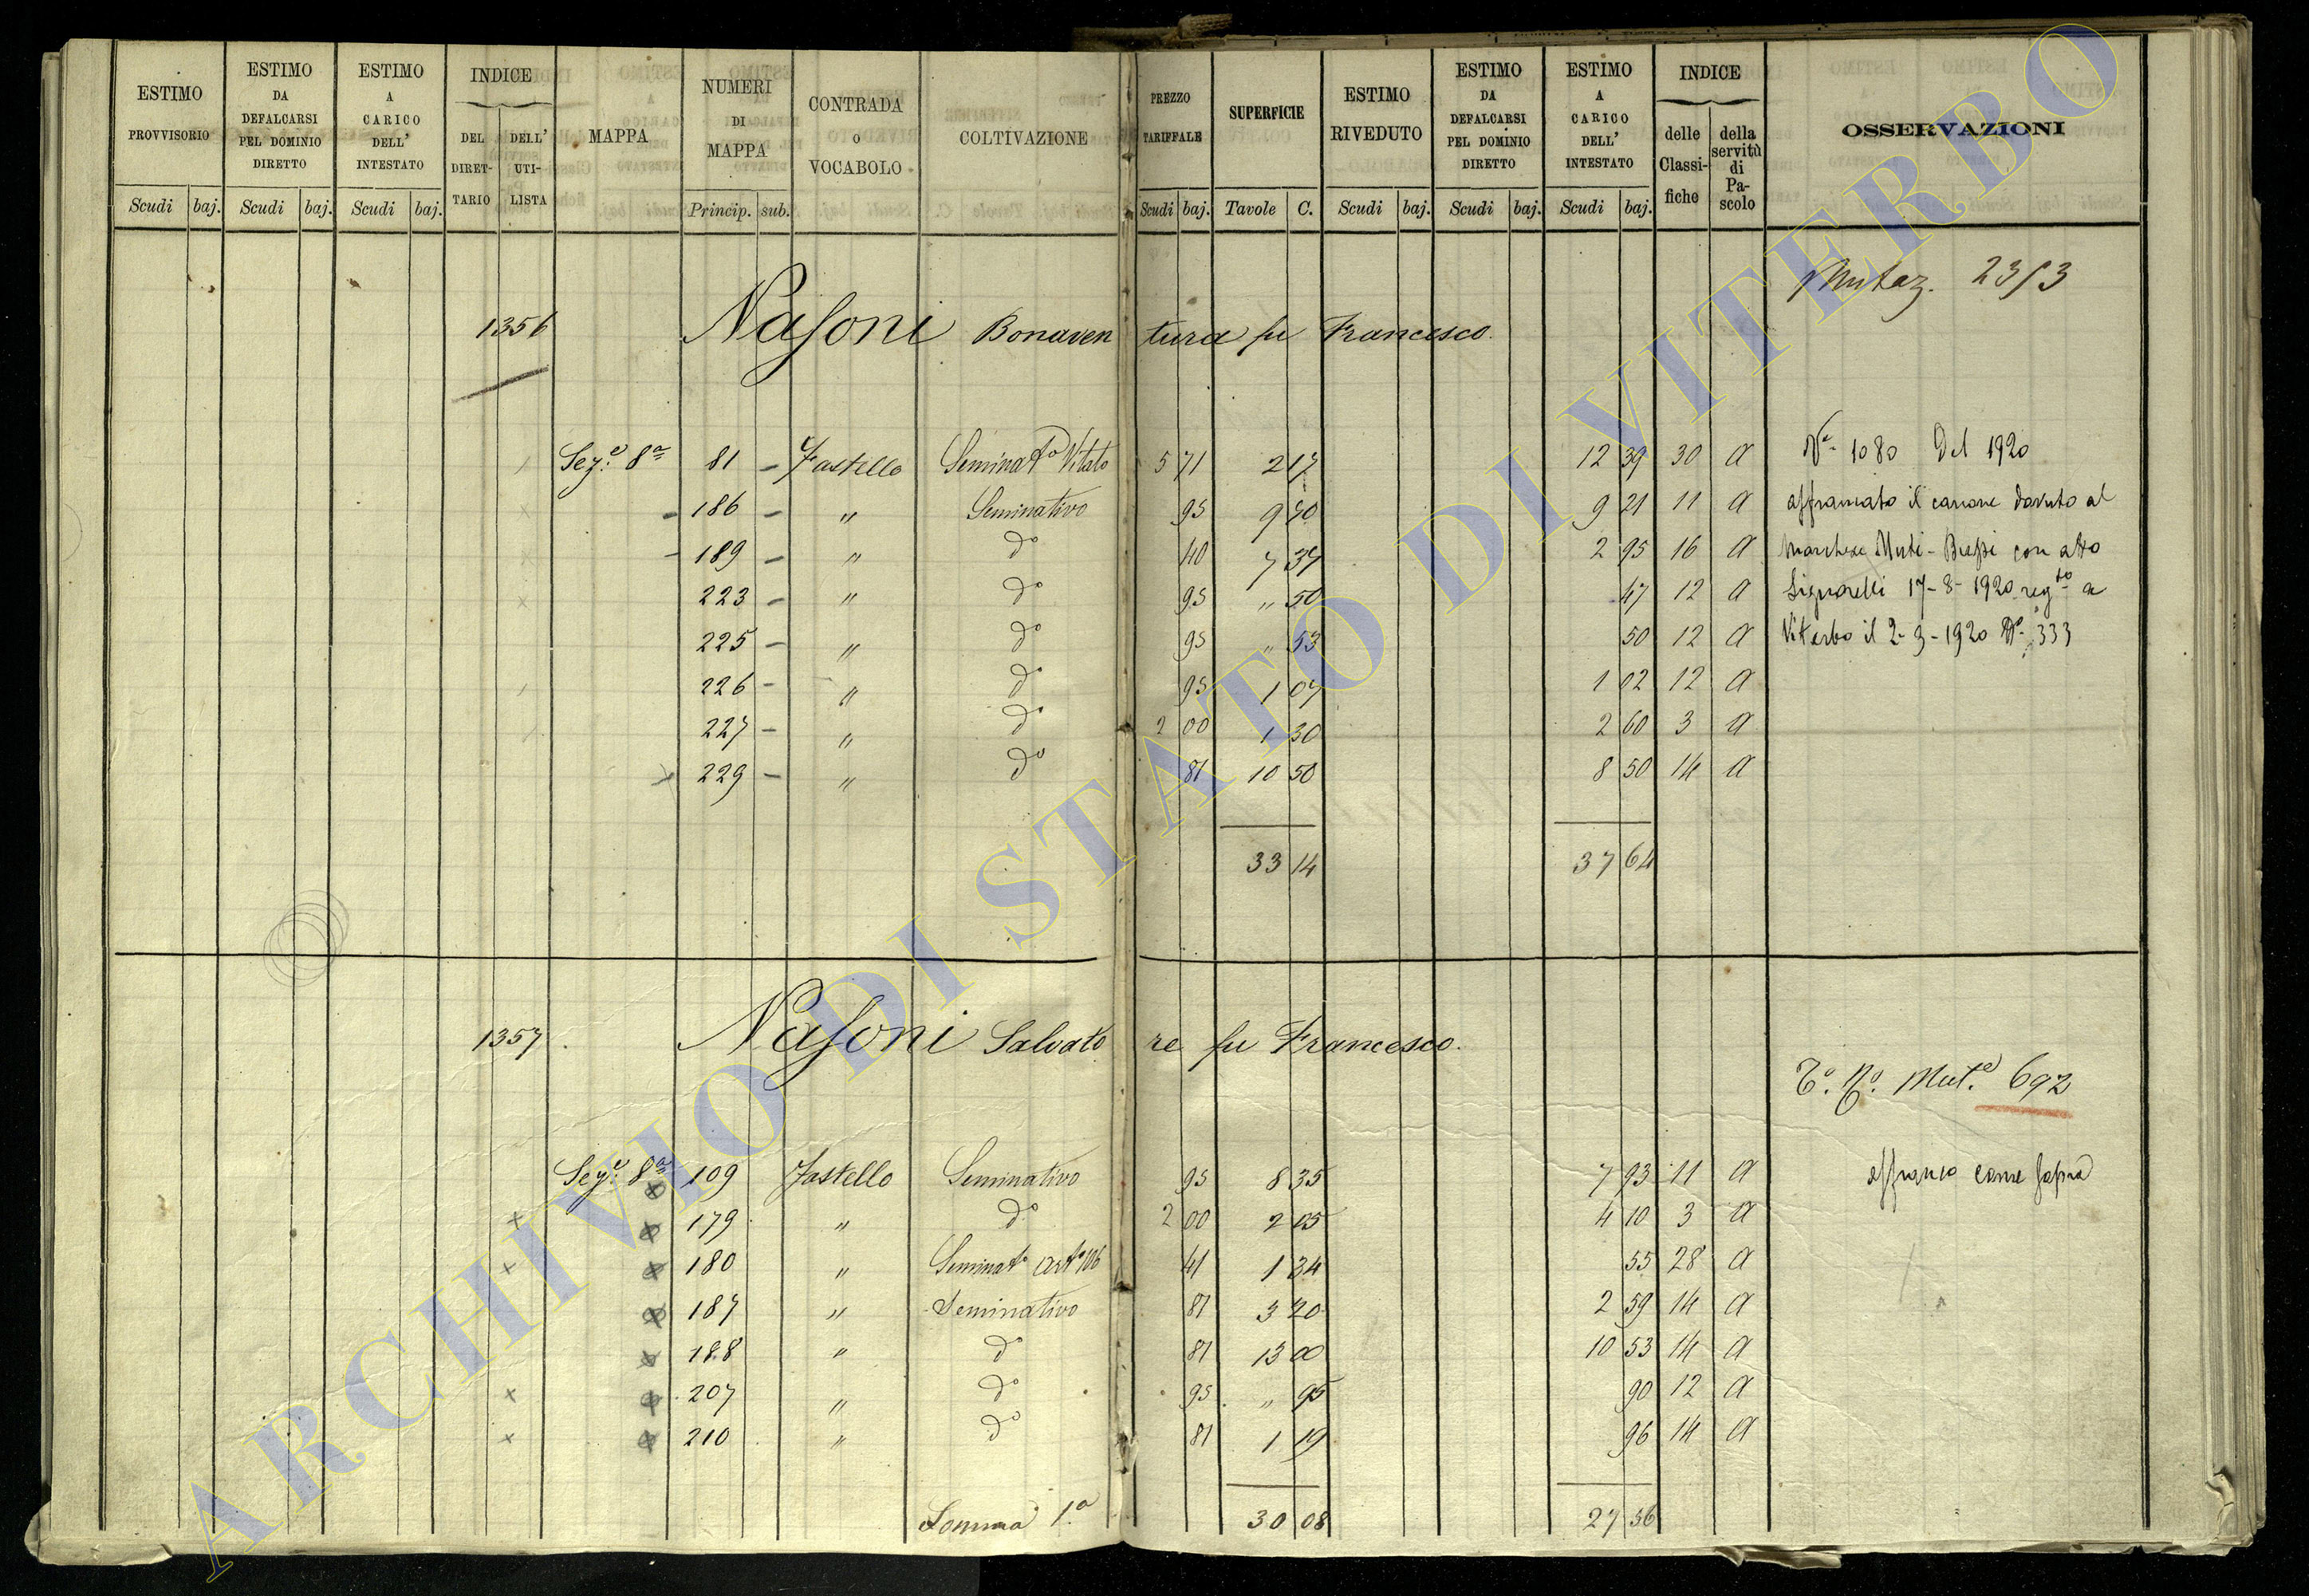 ESTIMO PROVVISORIO | ESTIMO DA DEFALCARSI PEL DOMINIO DIRETTO | ESTIMO A CARICO DELL' INTESTATO | INDICE DEL DIRETTARIO | DELL' UTILISTA | MAPPA | NUMERI DI MAPPA | CONTRADA O VOCABOLO | COLTIVAZIONE | PREZZO TARIFFALE | SUPERFICIE | ESTIMO RIVEDUTO | ESTIMO DA DEFALCARSI PEL DOMINIO DIRETTO | ESTIMO A CARICO DELL' INTESTATO | INDICE delle Classifiche | della servitù di Pascolo | OSSERVAZIONI
Scudi baj. Scudi baj. Scudi baj. Princip. sub. Scudi baj. Tavole C. Scudi baj. Scudi baj. Scudi baj.
Mutaz. 2353
1356 Nasoni Bonaventura fu Francesco
Sez.e 8a 81 Fastello Seminat.o Vitato 5 71 2 17 12 39 30 A N.o 1080 Del 1920
186 " Seminativo 95 9 70 9 21 11 A affrancato il canone dovuto al
189 " do 40 7 37 2 95 16 A Marchese Muti-Bussi con atto
223 " do 95 " 50 47 12 A Signorelli 17-8-1920 reg.to a
225 " do 95 " 53 50 12 A Viterbo il 2-9-1920 No. 333
226 " do 95 1 07 1 02 12 A
227 " do 2 00 1 30 2 60 3 A
229 " do 81 10 50 8 50 14 A
33 14 37 64
1357 Nasoni Salvatore fu Francesco
Mut.e 692
Sez.e 8a 109 Fastello Seminativo 95 8 35 7 93 11 A affranco come sopra
179 " do 2 00 2 05 4 10 3 A
180 " Seminat.o Art.o 106 41 1 34 55 28 A
187 " Seminativo 81 3 20 2 59 14 A
188 " do 81 13 00 10 53 14 A
207 " do 95 " 95 90 12 A
210 " do 81 1 19 96 14 A
Somma 1.a 30 08 27 56
ARCHIVIO DI STATO DI VITERBO